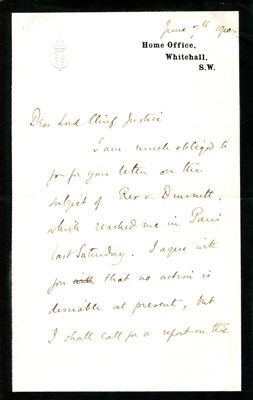 June 7th 1910
Home Office,
Whitehall,
S.W.
Dear Lord Chief Justice
I am much obliged to
for your letter on the
subject of Rex v.
which reached me in Paris
last Saturday. I agree with
you with that no action is
desirable at present, but
I shall call for a report on the